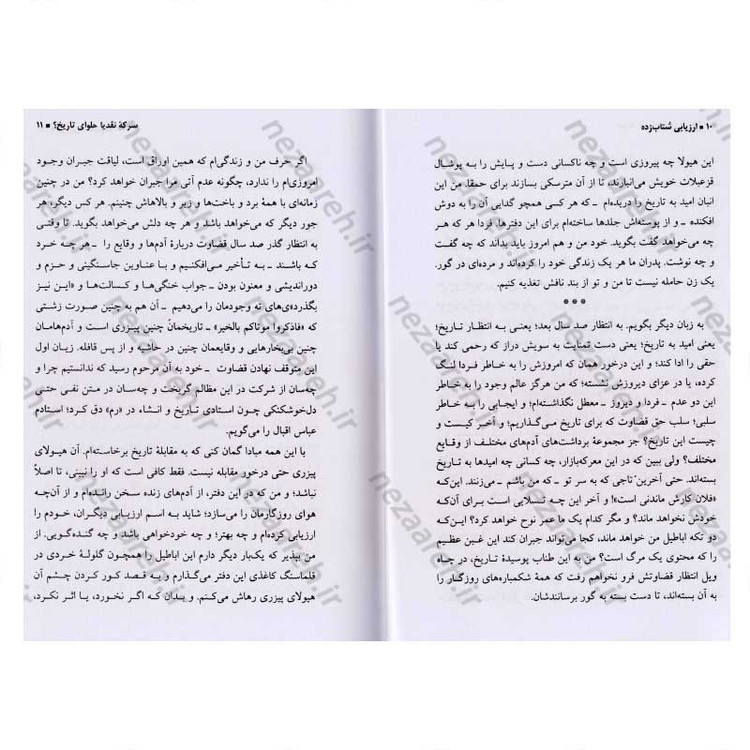 ۱۰ ■ ارزیابی شتاب‌زده
این هیولا چه پیروزی است و چه ناکسانی دست و پایش را به پوشال
قزعبلات خویش می‌انبارند، تا از آن مترسکی بسازند برای حمقا. من این
انبان امید به تاریخ را دریده‌ام ـ که هر کسی همچو گدایی آن را به دوش
افکنده ـ و از پوسته‌اش جلدها ساخته‌ام برای این دفترها. فردا هر که هر
چه می‌خواهد گفت بگوید. خود من و هم امروز باید بداند که چه گفت
و چه نوشت. پدران ما هر یک زندگی خود را کرده‌اند و مرده‌ای در گور.
یک زن حامله نیست تا من و تو از بند نافش تغذیه کنیم.
●●●
به زبان دیگر بگویم. به انتظار صد سال بعد؛ یعنی به انتظار تاریخ؛
یعنی امید به تاریخ؛ یعنی دست تمنایت به سویش دراز که رحمی کند یا
حقی را ادا کند؛ و این درخور همان که امروزش را به خاطر فردا لنگ
کرده، یا در عزای دیروزش نشسته؛ که من هرگز عالم وجود را به خاطر
این دو عدم ـ فردا و دیروز ـ معطل نگذاشته‌ام؛ و ایجابی را به خاطر
سلبی؛ سلب حق قضاوت که برای تاریخ می‌گذاریم؛ و آخر کیست و
چیست این تاریخ؟ جز مجموعهٔ برداشت‌های آدم‌های مختلف از وقایع
مختلف؟ ولی ببین که در این معرکه‌بازار، چه کسانی چه امیدها به تاریخ
بسته‌اند. حتی آخرین تاجی که به سر تو ـ که من باشم ـ می‌زنند. این‌که
«فلان کارش ماندنی است»! و آخر این چه تسلایی است برای آن‌که
خودش نخواهد ماند؟ و مگر کدام یک ما عمر نوح خواهد کرد؟ این‌که
دو تکه اباطیل من خواهد ماند، کجا می‌تواند جبران کند این غبن عظیم
را که محتوی یک مرگ است؟ من به این طناب پوسیدهٔ تاریخ، در چاه
ویل انتظار قضاوتش فرو نخواهم رفت که همهٔ شکمباره‌های روزگار را
به آن بسته‌اند، تا دست بسته به گور برسانندشان.
سرکهٔ نقد یا حلوای تاریخ؟ ■ ۱۱
اگر حرف من و زندگی‌ام که همین اوراق است، لیاقت جبران وجود
امروزی‌ام را ندارد، چگونه عدم آتی مرا جبران خواهد کرد؟ من در چنین
زمانه‌ای با همهٔ برد و باخت‌ها و زیر و بالاهاش چنینم. هر کس دیگر، هر
جور دیگر که می‌خواهد باشد و هر چه دلش می‌خواهد بگوید. تا وقتی
به انتظار گذر صد سال قضاوت دربارهٔ آدم‌ها و وقایع را ـ هر چه خرد
که باشند ـ به تأخیر می‌افکنیم و با عناوین جاسنگینی و حزم و
دوراندیشی و معنون بودن ـ جواب خنگی‌ها و کسالت‌ها و «این نیز
بگذرد»ی‌های ته وجودمان را می‌دهیم ـ آن هم به چنین صورت زشتی
که «فاذکروا موتاکم بالخیر» ـ تاریخمان چنین پیزری است و آدم‌هامان
چنین بی‌بخارهایی و وقایعمان چنین در حاشیه و از پس قافله. زیان اول
این متوقف نهادن قضاوت خود به آن مرحوم رسید که ندانستیم چرا و
چه‌سان از شرکت در این مظالم گریخت و چه‌سان در متن نفی حتی
دل‌خوشکنکی چون استادی تاریخ و انشاء در «رم» دق کرد؛ استادم
عباس اقبال را می‌گویم.
با این همه مبادا گمان کنی که به مقابلهٔ تاریخ برخاسته‌ام. آن هیولای
پیزری حتی درخور مقابله نیست. فقط کافی است که او را نبینی، تا اصلاً
نباشد؛ و من که در این دفتر، از آدم‌های زنده سخن رانده‌ام و از آن‌چه
هوای روزگارمان را می‌سازد؛ شاید به اسم ارزیابی دیگران، خودم را
ارزیابی کرده‌ام و چه بهتر؛ و چه خودخواهی باشد و چه گنده‌گویی. از
من بپذیر که یک‌بار دیگر دارم این اباطیل را همچون گلولهٔ خردی در
قلماسنگ کاغذی این دفتر می‌گذارم و به قصد کور کردن چشم آن
هیولای پیزری رهاش می‌کنم. و بدان که اگر نخورد، یا اثر نکرد،
nezaareh.ir